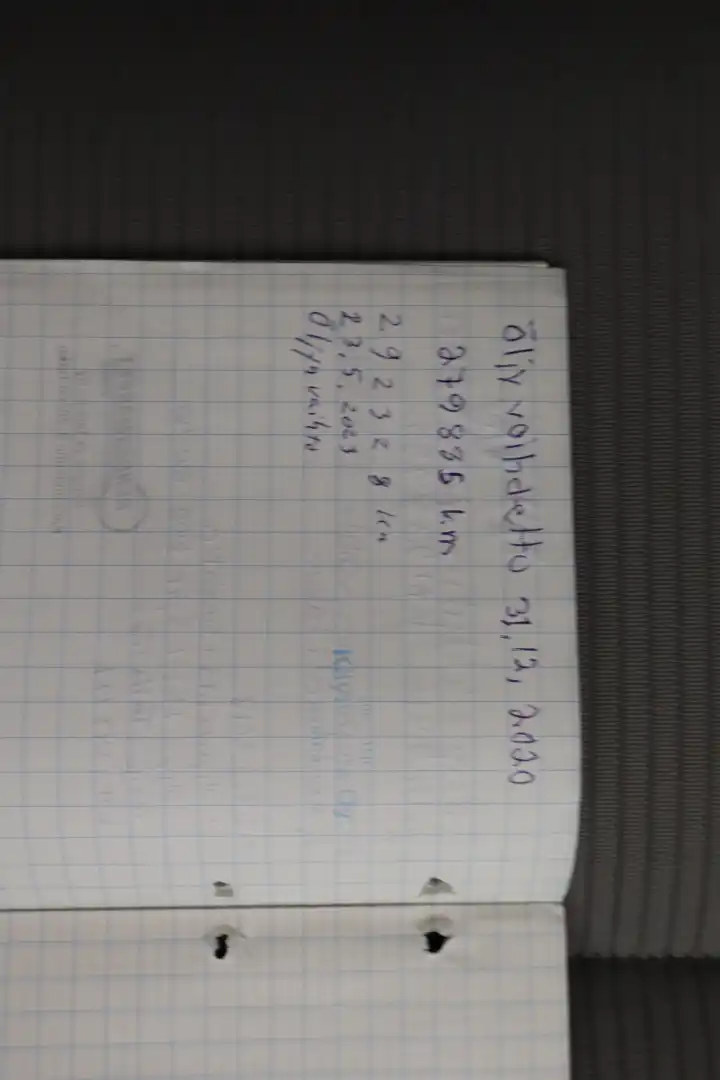 Öljy vaihdettu 31.12.2020
279885 km
292328 km
23.5.2023
Öljyn vaihto